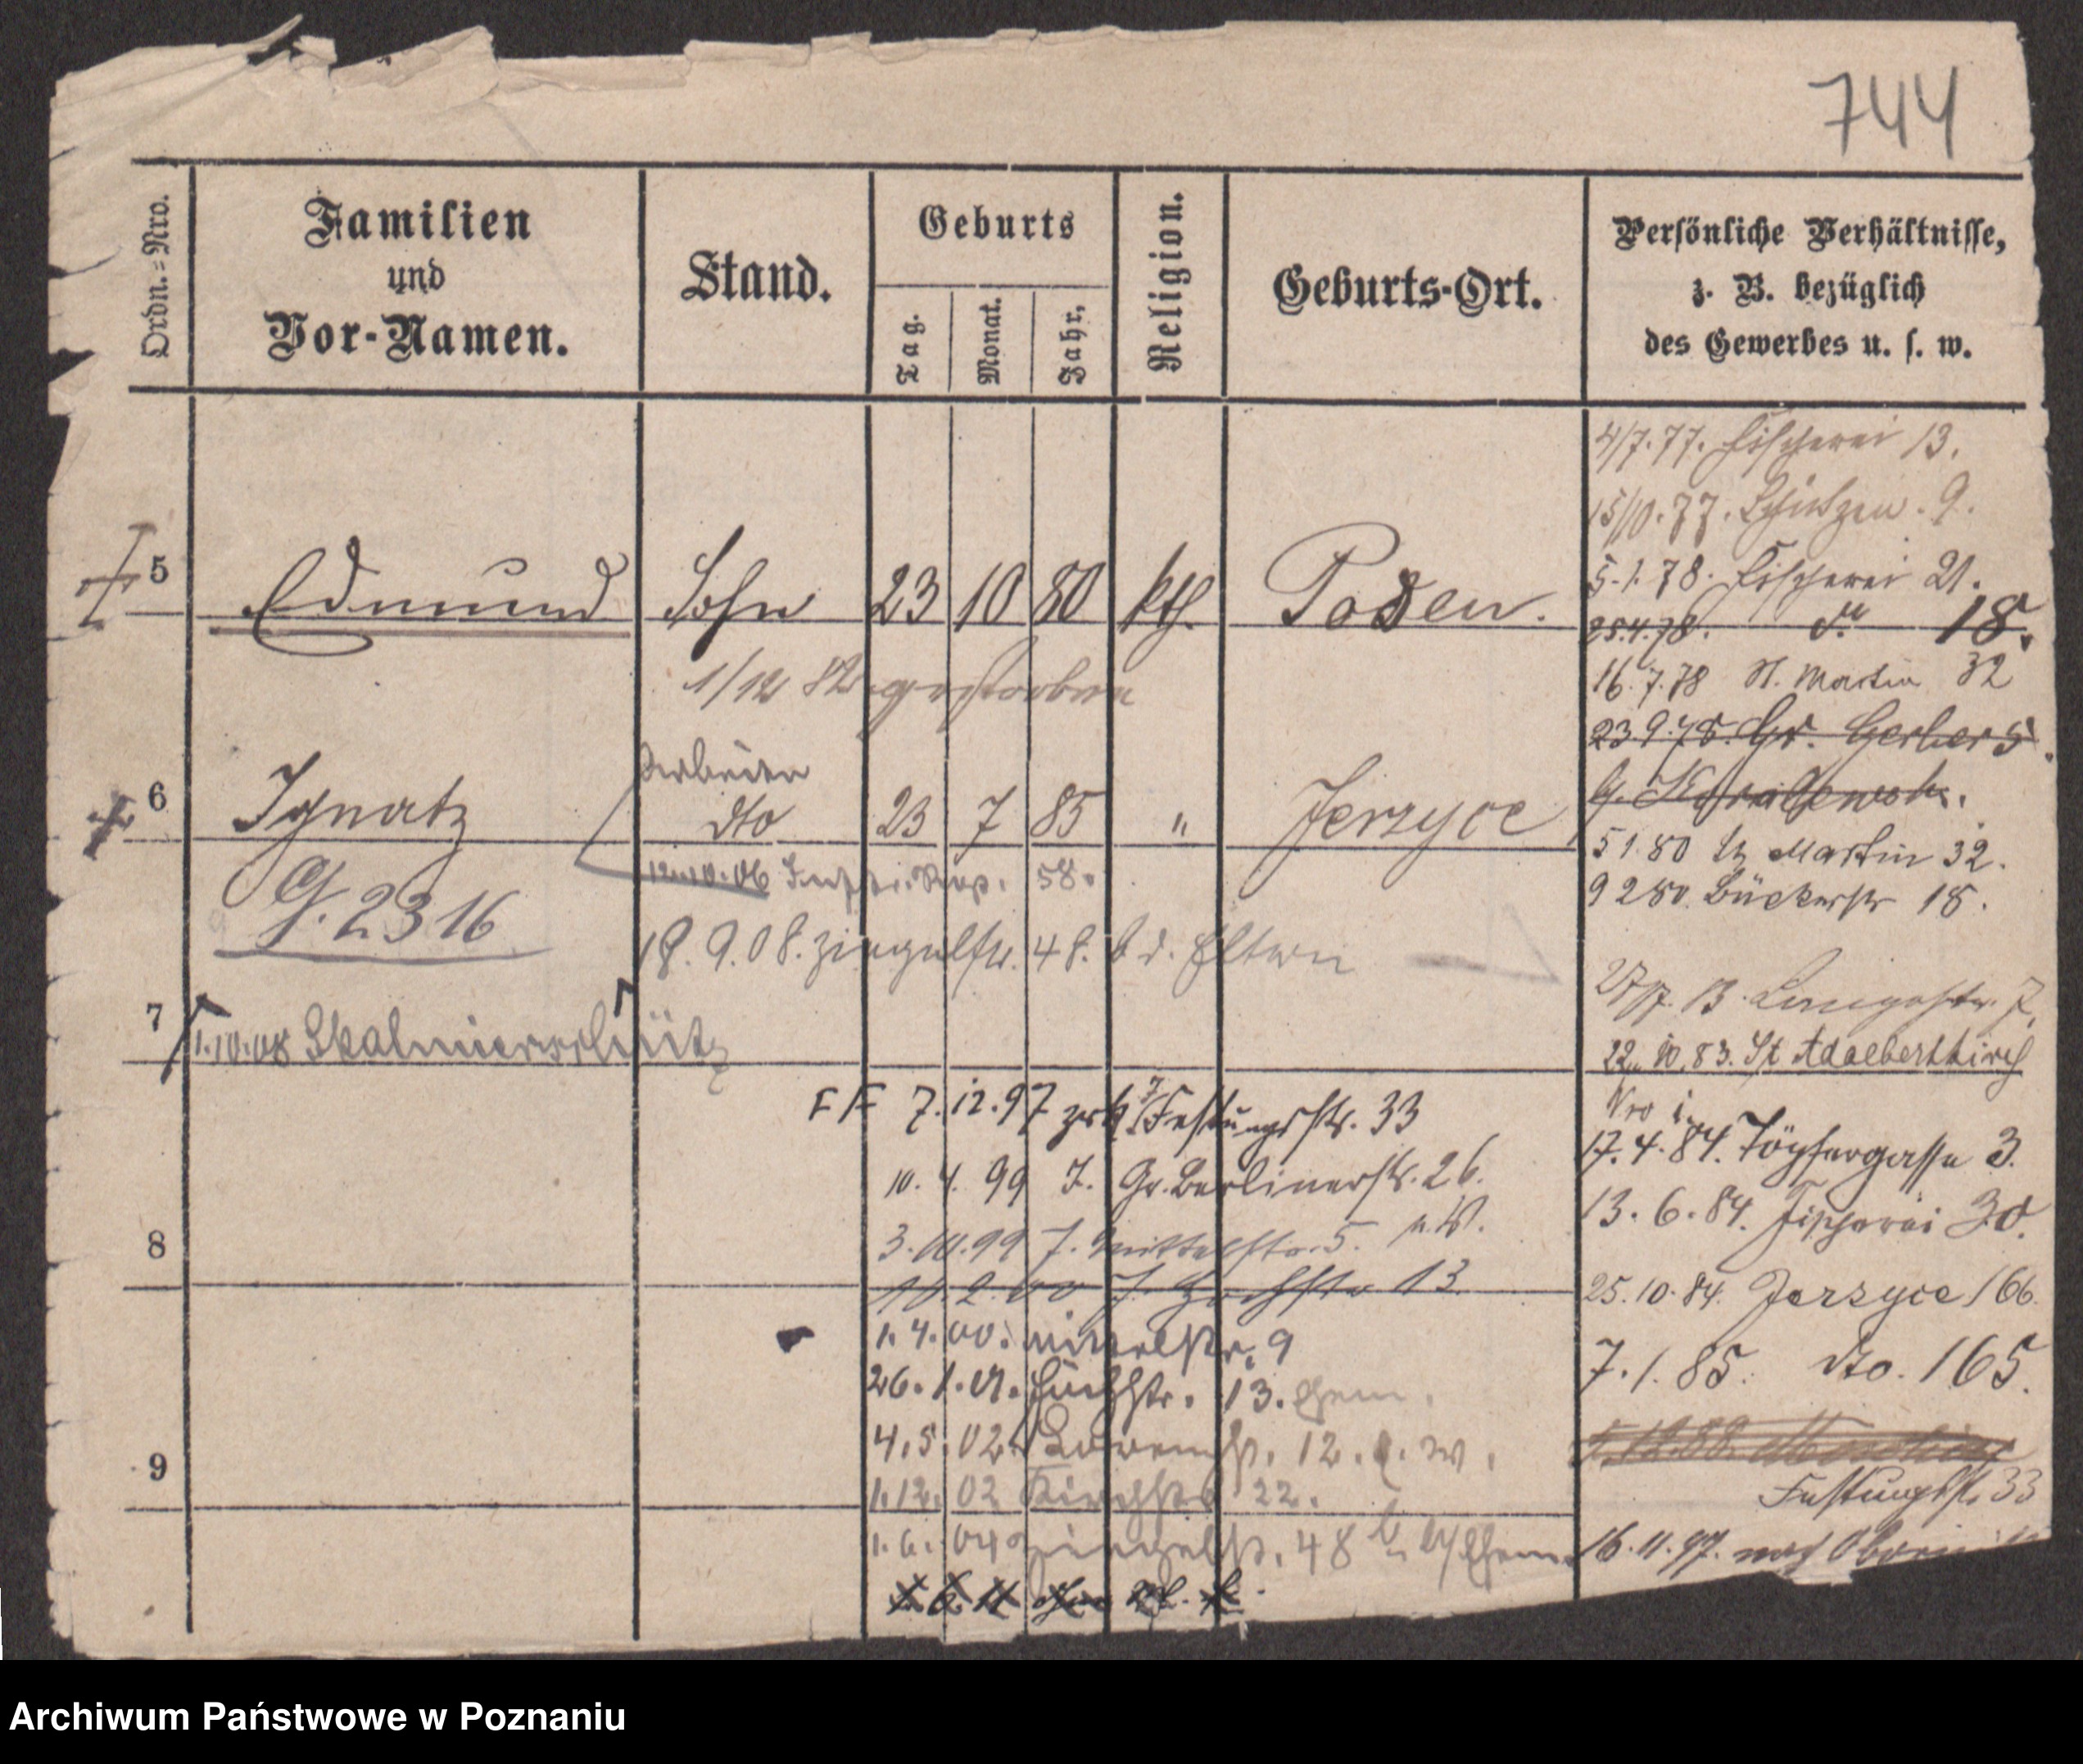 744
Ordn.=Nro.
Familien
und
Vor-Namen.
Stand.
Geburts
Tag.
Monat.
Jahr.
Religion.
Geburts-Ort.
Persönliche Verhältnisse,
z. B. bezüglich
des Gewerbes u. s. w.
4/7.77. Fischerei 13.
15/10.77. Schützen. 9.
5.1.78. Fischerei 21.
25.4.78. do 18.
16.7.78 St. Martin 32
23.9.78. Gr. Gerber 5
5 1 80 St Martin 32.
9 2 80. Bückerstr 18.
7.
22. 10. 83. St Adalbertkirch
Nro 1.
17.4.84. Töpfergasse 3.
13.6.84. Fischerei 30.
25.10.84. Jerzyce 166.
7.1.85. dto. 165.
Festungsstr. 33
16.11.97. nach
5 Edmund Sohn 23 10 80 kth. Posen.
1/12 82 gestorben
Arbeiter
6 Ignatz dto 23 7 85 " Jerzyce
12.10.06 58.
G. 2316
18.9.08. Ziegelstr. 48. b d. Eltern
7
1.10.08 Skalmierschütz
FF 7.12.97 zrk Festungsstr. 33
10.4.99 J. Gr. Berlinerstr. 26.
3.10.99 J. Mittelstr. 5. n.W.
8
10.2.00 J. Hochstr 13
1.4.00. Mittelstr. 9
26.1.01. Hochstr. 13.
4.5.02. 12.
9
1.12.02 Kirchstr 22.
1.6.04 Ziegelstr. 48
Archiwum Państwowe w Poznaniu